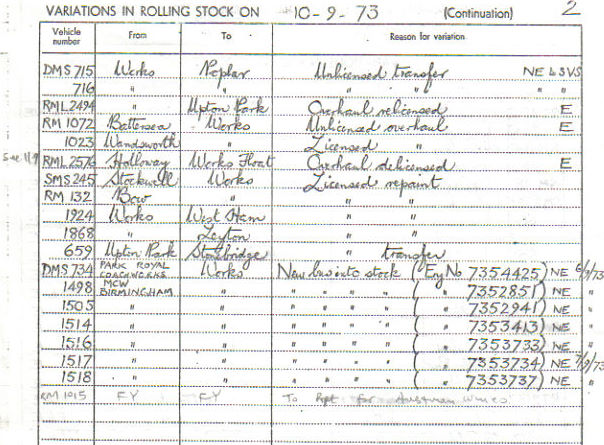 VARIATIONS IN ROLLING STOCK ON 10-9-73 (Continuation) 2
Vehicle number From To Reason for variation
DMS 715 Works Poplar Unlicensed transfer NE LSVS
716 " " " " " "
RML 2494 " Upton Park Overhaul relicensed E
RM 1072 Battersea Works Unlicensed overhaul E
1023 Wandsworth " Licensed "
See 11/9 RML 2576 Holloway Works Float Overhaul delicensed E
SMS 245 Stockwell Works Licensed repaint
RM 132 Bow " " "
1924 Works West Ham " "
1868 " Leyton " "
659 Upton Park Stonebridge " transfer
DMS 734 PARK ROYAL COACHWORKS Works New bus into stock (Eng No 7354425) NE 6/9/73
1498 MCW BIRMINGHAM " " " " " ( " 7352851) NE "
1505 " " " " " " ( " 7352941) NE "
1514 " " " " " " ( " 7353413) NE "
1516 " " " " " " ( " 7353733) NE "
1517 " " " " " " ( " 7353734) NE 7/9/73
1518 " " " " " " ( " 7353737) NE "
RM 1015 FY FY To Rpt for